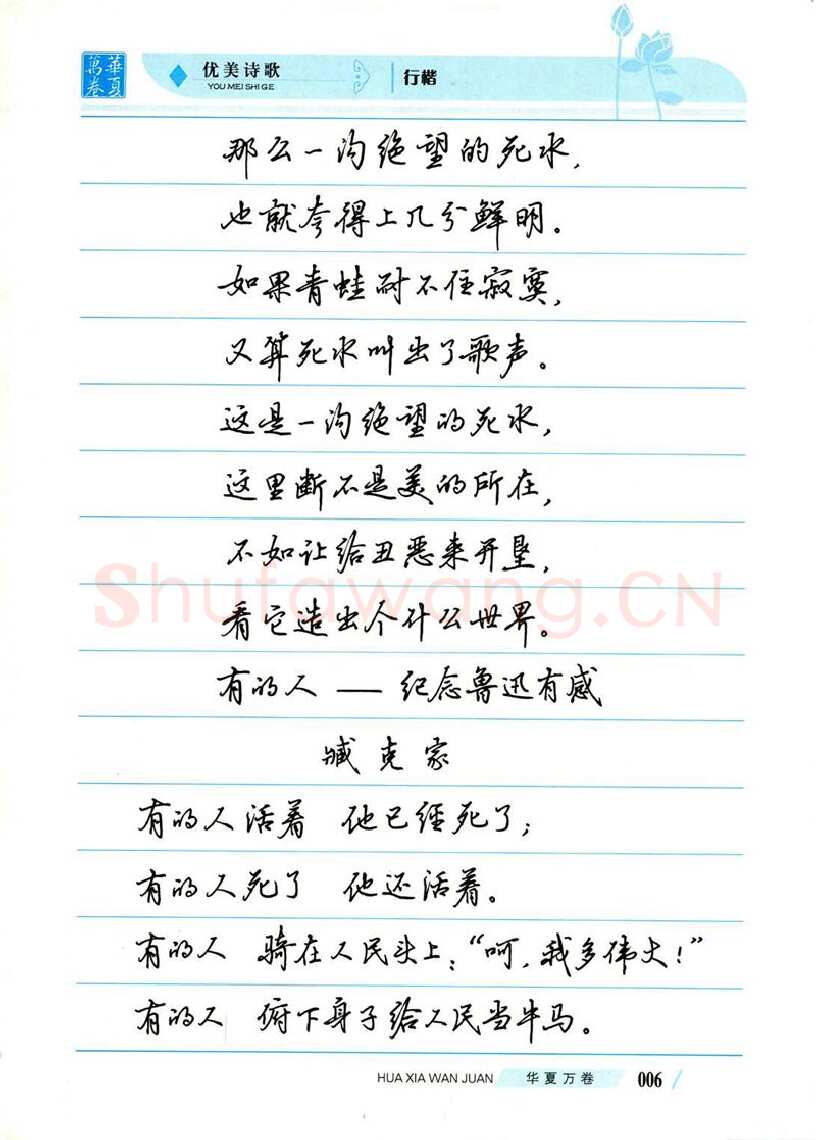 華夏
萬卷
优美诗歌
YOU MEI SHI GE
行楷
那么一沟绝望的死水，
也就夸得上几分鲜明。
如果青蛙耐不住寂寞，
又算死水叫出了歌声。
这是一沟绝望的死水，
这里断不是美的所在，
不如让给丑恶来开垦，
看它造出个什么世界。
有的人 — 纪念鲁迅有感
臧克家
有的人活着 他已经死了；
有的人死了 他还活着。
有的人 骑在人民头上：“呵，我多伟大！”
有的人 俯下身子给人民当牛马。
Shufawang.CN
HUA XIA WAN JUAN
华夏万卷
006